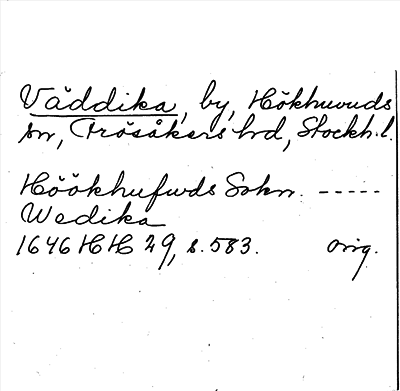 Väddika, by, Hökhuvuds
sn, Frösåkers hrd, Stockh. l.
Höökhufwds Sokn. -----
Wedika
1646 HH 29, s. 583. orig.